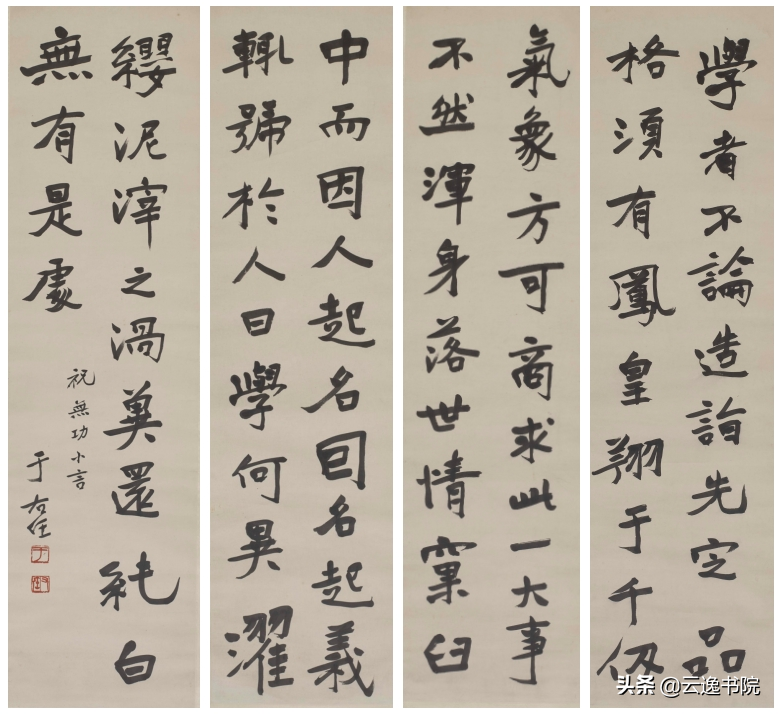 學者不論造詣先定品
格須有鳳皇翔于千仭
氣象方可商求此一大事
不然渾身落世情窠臼
中而因人起名囙名起義
輒號於人曰學何異濯
纓泥滓之渦冀還純白
無有是處
祝無功小言
于右任
头条 @云逸书院